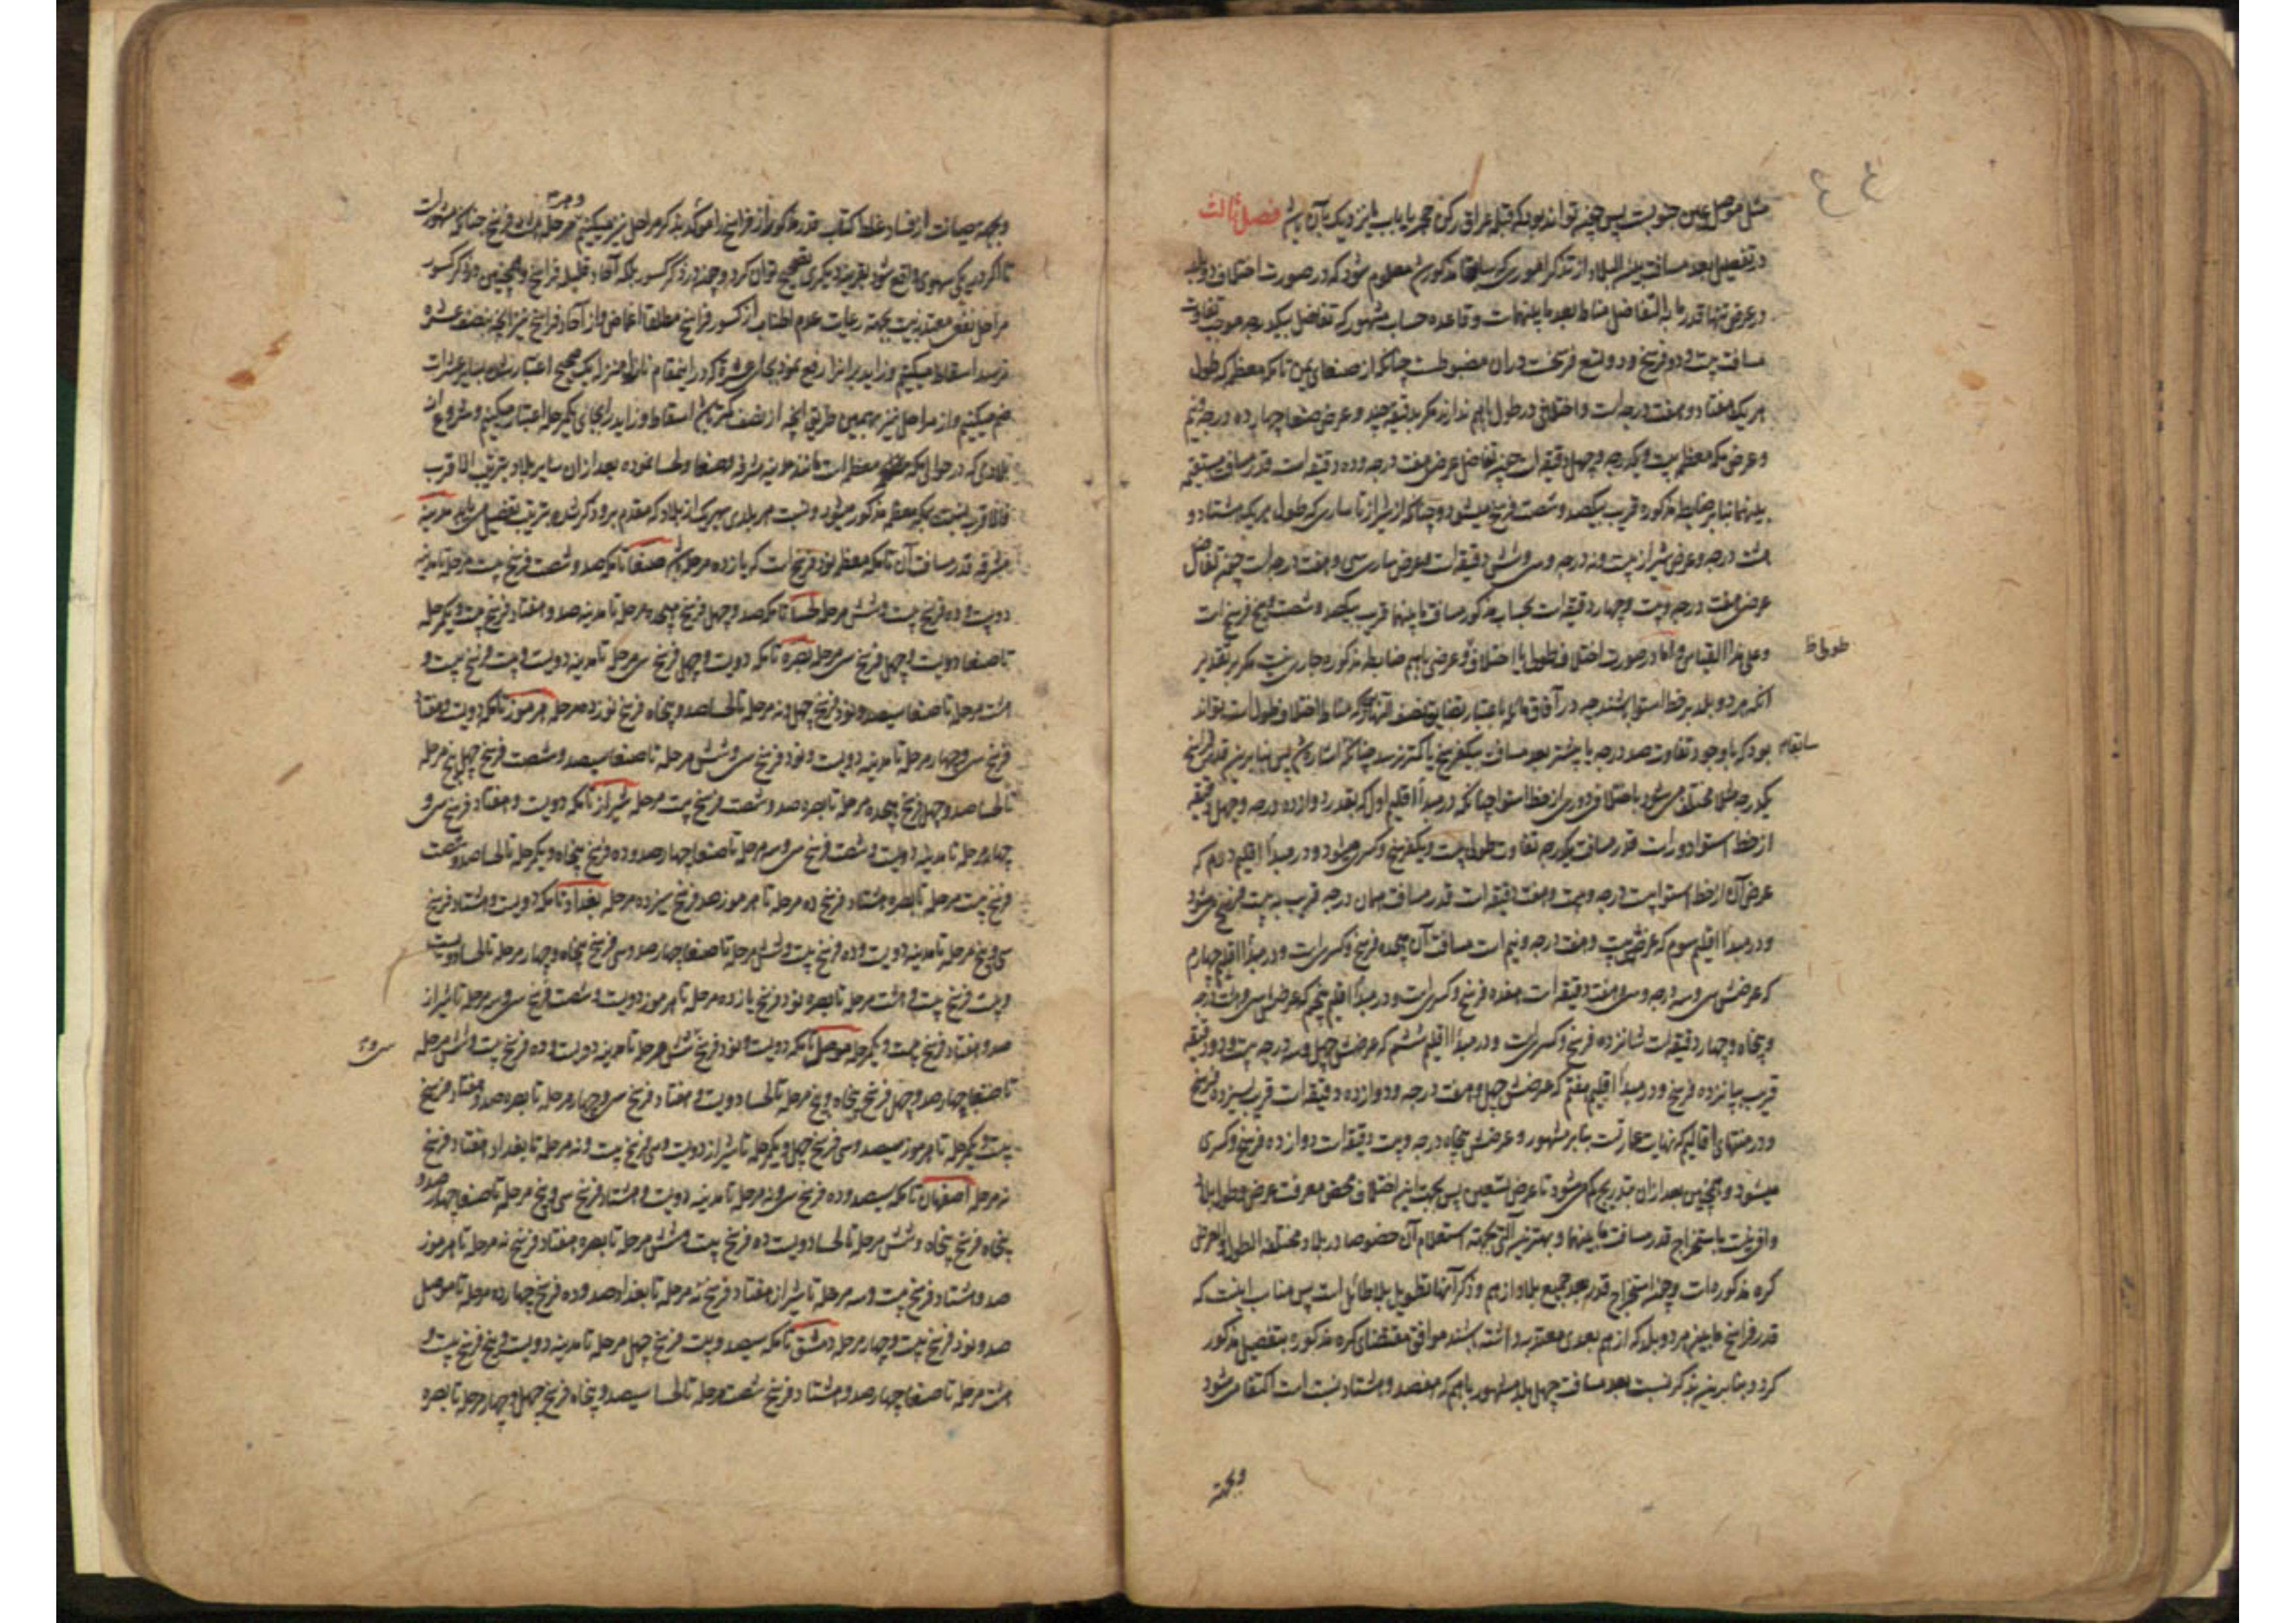 مثل موصل عین جنوبست پس چگونه تواند بود که قبله عراق رکن حجر یا باب یا نزدیک بآن باشد فصل ثالث
در تفصیل بعد مسافت بین البلاد از تذکر اموری که سابقا مذکور شد معلوم میشود که در صورت اختلاف دو بلد
در عرض تنها قدر ما به التفاضل مناط بعد ما بینهماست و قاعده حساب مشهور که تفاضل یکدرجه موجب تفاوت
مسافت بیست و دو فرسخ و دو تسع فرسخست در آن مضبوطست چنانکه از صنعای یمن تا مکه معظمه که طول
هر یک هفتاد و هفت درجه است و اختلافی در طول باهم ندارند مگر بدقیقه چند و عرض صنعا چهارده درجه و نیم
و عرض مکه معظمه بیست و یکدرجه و چهل دقیقه است چون تفاضل عرض هفت درجه و ده دقیقه است قدر مسافت مستقیمه
بینهما بنابر ضابطه مذکوره قریب بیکصد و شصت فرسخ میشود و چنانکه از شیراز تا ساری که طول هر یک هشتاد و
هشت درجه و عرض شیراز بیست و نه درجه و سی و شش دقیقه است و عرض ساری سی و هفت درجه است چون تفاضل
عرض هفت درجه و بیست و چهار دقیقه است بحساب مذکور مسافت ما بینهما قریب بیکصد و شصت و پنج فرسخ است
و علی هذا القیاس و اما در صورت اختلاف طول یا اختلاف طول و عرض باهم ضابطه مذکوره جاری نیست مگر بر تقدیر
طول ظ
آنکه هر دو بلد بر خط استوا باشند چه در آفاق مایله باعتبار تضایق نصف النهارها که مناط اختلاف طول است تواند
بود که با وجود تفاوت صد درجه یا بیشتر بعد مسافت بیکفرسخ یا کمتر رسد چنانکه اشاره شد پس بنابرین قدر فراسخ
سابقا
یکدرجه طول مختلف میشود باختلاف دوری از خط استوا چنانکه در مبدأ اقلیم اول که بقدر دوازده درجه و چهل دقیقه
از خط استوا دور است قدر مسافت یکدرجه تفاوت طول بیست و یکفرسخ و کسری میشود و در مبدأ اقلیم دوم که
عرض آن از خط استوا بیست درجه و بیست و هفت دقیقه است قدر مسافت همان درجه قریب به بیست فرسخ میشود
و در مبدأ اقلیم سوم که عرضش بیست و هفت درجه و نیم است مسافت آن هجده فرسخ و کسری است و در مبدأ اقلیم چهارم
که عرضش سی و سه درجه و سی و هفت دقیقه است هفده فرسخ و کسری است و در مبدأ اقلیم پنجم که عرض سی و هشت درجه
و پنجاه و چهار دقیقه است شانزده فرسخ و کسری است و در مبدأ اقلیم ششم که عرضش چهل و سه درجه بیست و دو دقیقه
قریب بپانزده فرسخ و در مبدأ اقلیم هفتم که عرضش چهل و هفت درجه و دوازده دقیقه است قریب بسیزده فرسخ
و در منتهای اقالیم که نهایت عمارتست بنابر مشهور و عرضش پنجاه درجه و بیست دقیقه است دوازده فرسخ و کسری
میشود و همچنین بعد از آن بتدریج کم میشود تا عرض تسعین پس بجهت این اختلاف محض معرفت عرض و طول بلاد
وافی نیست باستخراج قدر مسافت ما بینهما و بهترین آلتی بجهته استعلام آن خصوصا در بلاد مختلفه الطول و العرض
کره مذکوره است و چون استخراج قدر بعد جمیع بلاد از هم و ذکر آنها تطویل بلا طائل است پس مناسب اینست که
قدر فراسخ ما بین هر دو بلد که از هم بعدی معتدبه داشته باشند موافق مقتضای کره مذکوره بتفصیل مذکور
کردد بنابرین بذکر نسبت بعد مسافت چهل بلد مشهور باهم که هفصد و هشتاد نسبت است اکتفا میشود
وبجهته
وبجهته صیانت از فساد غلط کتاب قدر مذکور از فراسخ را موکد بذکر مراحل نیز میکنیم هر مرحله هشت فرسخ چنانکه مشهور است
تا اگر در یکی سهوی واقع شود بقرینه دیگری تصحیح توان کرد و چون در ذکر کسور بلکه آحاد قلیله فراسخ و همچنین در ذکر کسور
مراحل نفعی معتدبه نیست بجهته رعایت عدم اطناب از کسور فراسخ مطلقا اغماض و از آحاد فراسخ نیز آنچه بنصف عشره
نرسد اسقاط میکنیم و زاید بر آنرا رفع نموده بجای عشره که در اینمقام نازل منزله یک صحیح اعتبار شده بسایر عشرات
ضم میکنیم و از مراحل نیز بهمین طریق آنچه از نصف کمتر باشد اسقاط و زاید را بجای یکمرحله اعتبار میکنیم و شروع از
بلادی که در حوالی مکه معظمه است مانند مدینه مشرفه و صنعا و لحسا نموده بعد از آن سایر بلاد بترتیب الاقرب
فالاقرب بنسبت بمکه معظمه مذکور میشود و نسبت هر بلدی بهر یک از بلاد که مقدم برو ذکر شده بترتیب تفصیل می یابد مدینه
مشرفه قدر مسافت آن تا مکه معظمه نود فرسخ است که یازده مرحله باشد صنعا تا مکه صد و شصت فرسخ بیست مرحله تا مدینه
دویست و ده فرسخ بیست و شش مرحله لحسا تا مکه صد و چهل فرسخ هجده مرحله تا مدینه صد و هفتاد فرسخ بیست و یکمرحله
تا صنعا دویست و چهل فرسخ سی مرحله بصره تا مکه دویست و چهل فرسخ سی مرحله تا مدینه دویست و بیست فرسخ بیست و
هشت مرحله تا صنعا سیصد و نود فرسخ چهل و نه مرحله تا لحسا صد و پنجاه فرسخ نوزده مرحله هرموز تا مکه دویست و هفتاد
فرسخ سی و چهار مرحله تا مدینه دویست و نود فرسخ سی و شش مرحله تا صنعا سیصد و شصت فرسخ چهل پنج مرحله
تا لحسا صد و چهل فرسخ هجده مرحله تا بصره صد و شصت فرسخ بیست مرحله شیراز تا مکه دویست و هفتاد فرسخ سی و
چهار مرحله تا مدینه دویست و شصت فرسخ سی و سه مرحله تا صنعا چهار صد و ده فرسخ پنجاه و یکمرحله تا لحسا صد و شصت
فرسخ بیست مرحله تا بصره هشتاد فرسخ ده مرحله تا هرموز صد فرسخ سیزده مرحله بغداد تا مکه دویست و هشتاد فرسخ
سی و پنج مرحله تا مدینه دویست و ده فرسخ بیست و شش مرحله تا صنعا چهار صد و سی فرسخ پنجاه و چهار مرحله تا لحسا دویست
و بیست فرسخ بیست و هشت مرحله تا بصره نود فرسخ یازده مرحله تا هرموز دویست و شصت فرسخ سی و سه مرحله تا شیراز
صد و هفتاد فرسخ بیست و یکمرحله موصل تا مکه دویست و نود فرسخ شش مرحله تا مدینه دویست و ده فرسخ بیست و شش مرحله
سی و
تا صنعا چهار صد و چهل فرسخ پنجاه و پنج مرحله تا لحسا دویست و هفتاد فرسخ سی و چهار مرحله تا بصره صد و هفتاد فرسخ
بیست و یکمرحله تا هرموز سیصد و سی فرسخ چهل و یکمرحله تا شیراز دویست و سی فرسخ بیست و نه مرحله تا بغداد هفتاد فرسخ
نه مرحله اصفهان تا مکه سیصد و ده فرسخ سی و نه مرحله تا مدینه دویست و هشتاد فرسخ سی و پنج مرحله تا صنعا چهار صد و
پنجاه فرسخ پنجاه و شش مرحله تا لحسا دویست ده فرسخ بیست و شش مرحله تا بصره هفتاد فرسخ نه مرحله تا هرموز
صد و هشتاد فرسخ بیست و سه مرحله تا شیراز هفتاد فرسخ نه مرحله تا بغداد صد و ده فرسخ چهارده مرحله تا موصل
صد و نود فرسخ بیست و چهار مرحله دمشق تا مکه سیصد و بیست فرسخ چهل مرحله تا مدینه دویست و پنج فرسخ بیست و
هشت مرحله تا صنعا چهار صد و هشتاد فرسخ شصت مرحله تا لحسا سیصد و پنجاه فرسخ چهل و چهار مرحله تا بصره